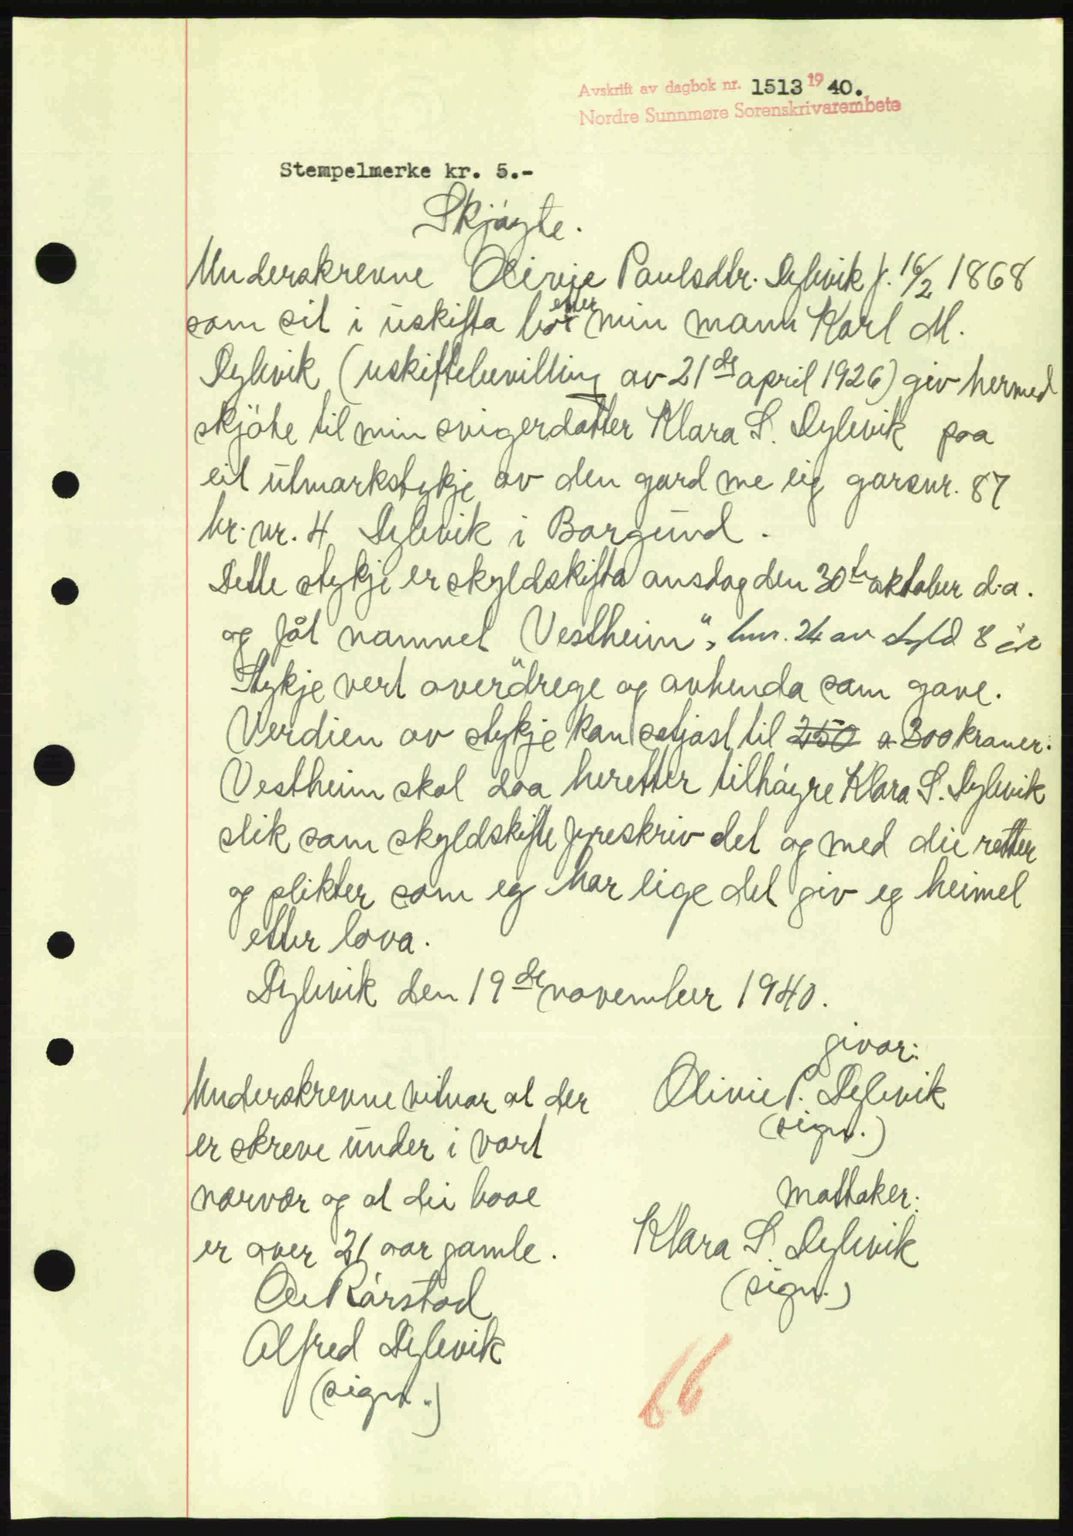 Avskrift av dagbok nr. 1513 19 40.
Nordre Sunnmøre Sorenskrivarembete
Stempelmerke kr. 5.-
Skjøyte.
Underskrevne Olivie Paulsdtr. Dylivik f. 16/2 1868
som sit i uskifta bo etter min mann Karl M.
Dylivik (uskiftebevilling av 21de april 1926) giv hermed
skjöte til min svigerdatter Klara S. Dylivik paa
eit utmarkstykje av den gard me eig garsnr. 87
br. nr. 4 Dylivik i Borgund.
Dette stykje er skyldskifta onsdag den 30te oktober d.a.
og fåt namnet Vestheim", bnr. 24 av skyld 8 øre
Stykje vert overdrege og avhenda som gave.
Verdien av stykje kan setjast til 250 a 300 kroner.
Vestheim skal daa heretter tilhøyre Klara S. Dylivik
slik som skyldskifte fyreskriv det og med dei retter
og plikter som eg har lige det giv eg heimel
etter lova.
Dylivik den 19de november 1940.
givar:
Olivie P. Dylivik
(sign.)
Underskrevne vitnar at der
er skreve under i vort
nærvær og at dei baae
er over 21 aar gamle.
Mottaker:
Klara S. Dylivik
(sign.)
Ole Rørstad
Alfred Dylivik
(sign.)
66